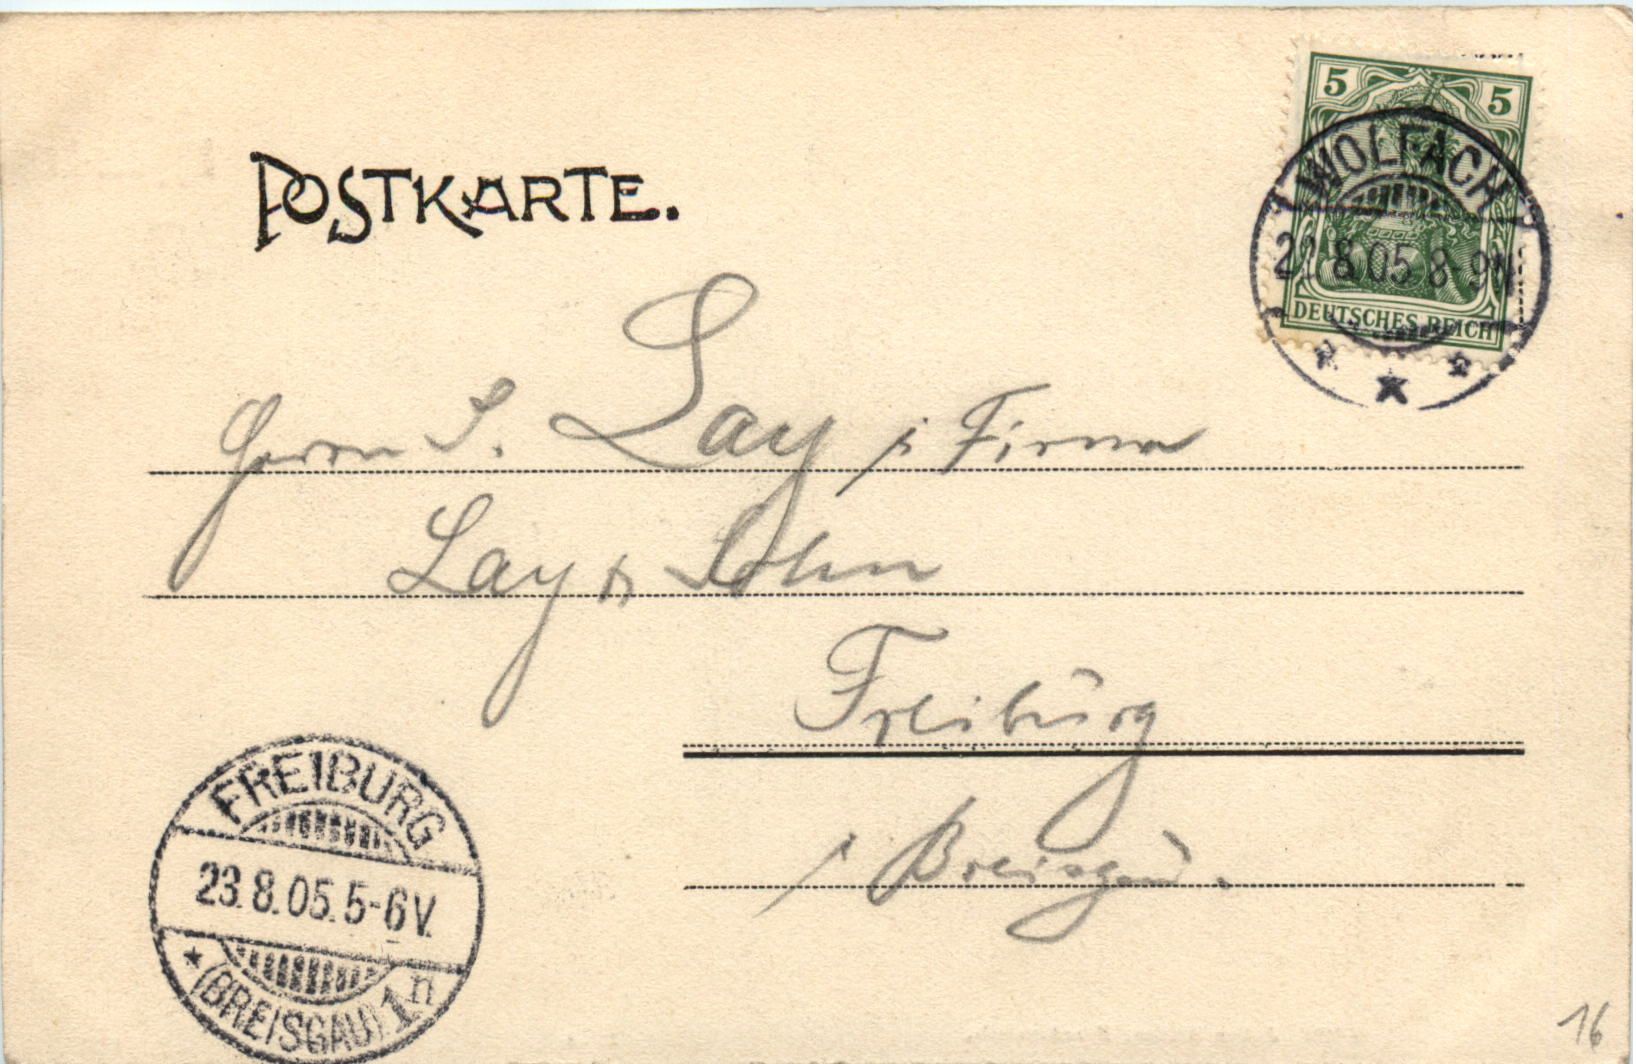 POSTKARTE.
5 5
WOLFACH
22.8.05 8-9N
DEUTSCHES REICH
Herrn S. Lay i Firma
Lay & Sohn
Freiburg
i Breisgau.
FREIBURG
23.8.05.5-6V.
(BREISGAU) 1n
16